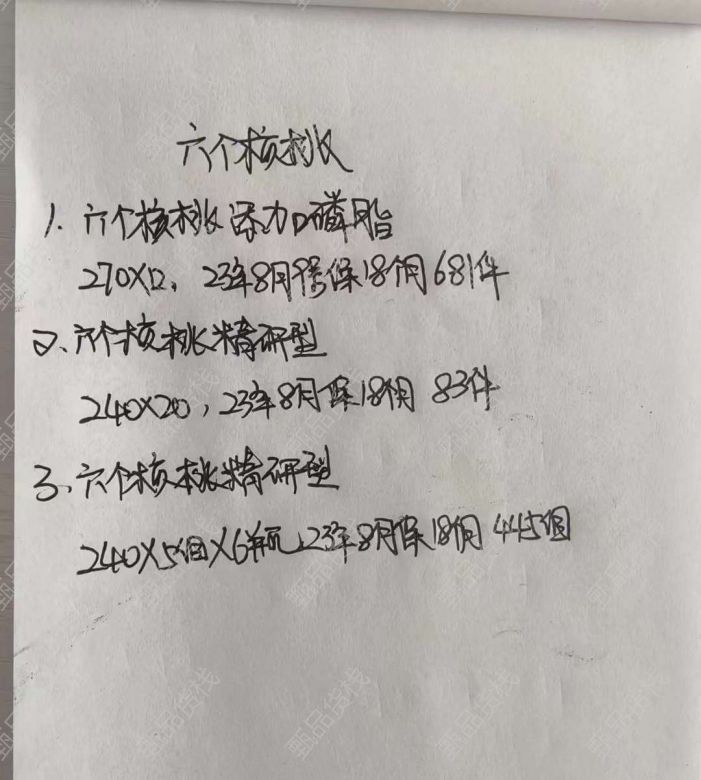 六个核桃
1. 六个核桃添加磷脂
270X12, 23年8月保18个月 681件
2、六个核桃精研型
240X20, 23年8月保18个月 83件
3、六个核桃精研型
240X5组X6瓶, 23年8月保18个月 445组
甄品货栈